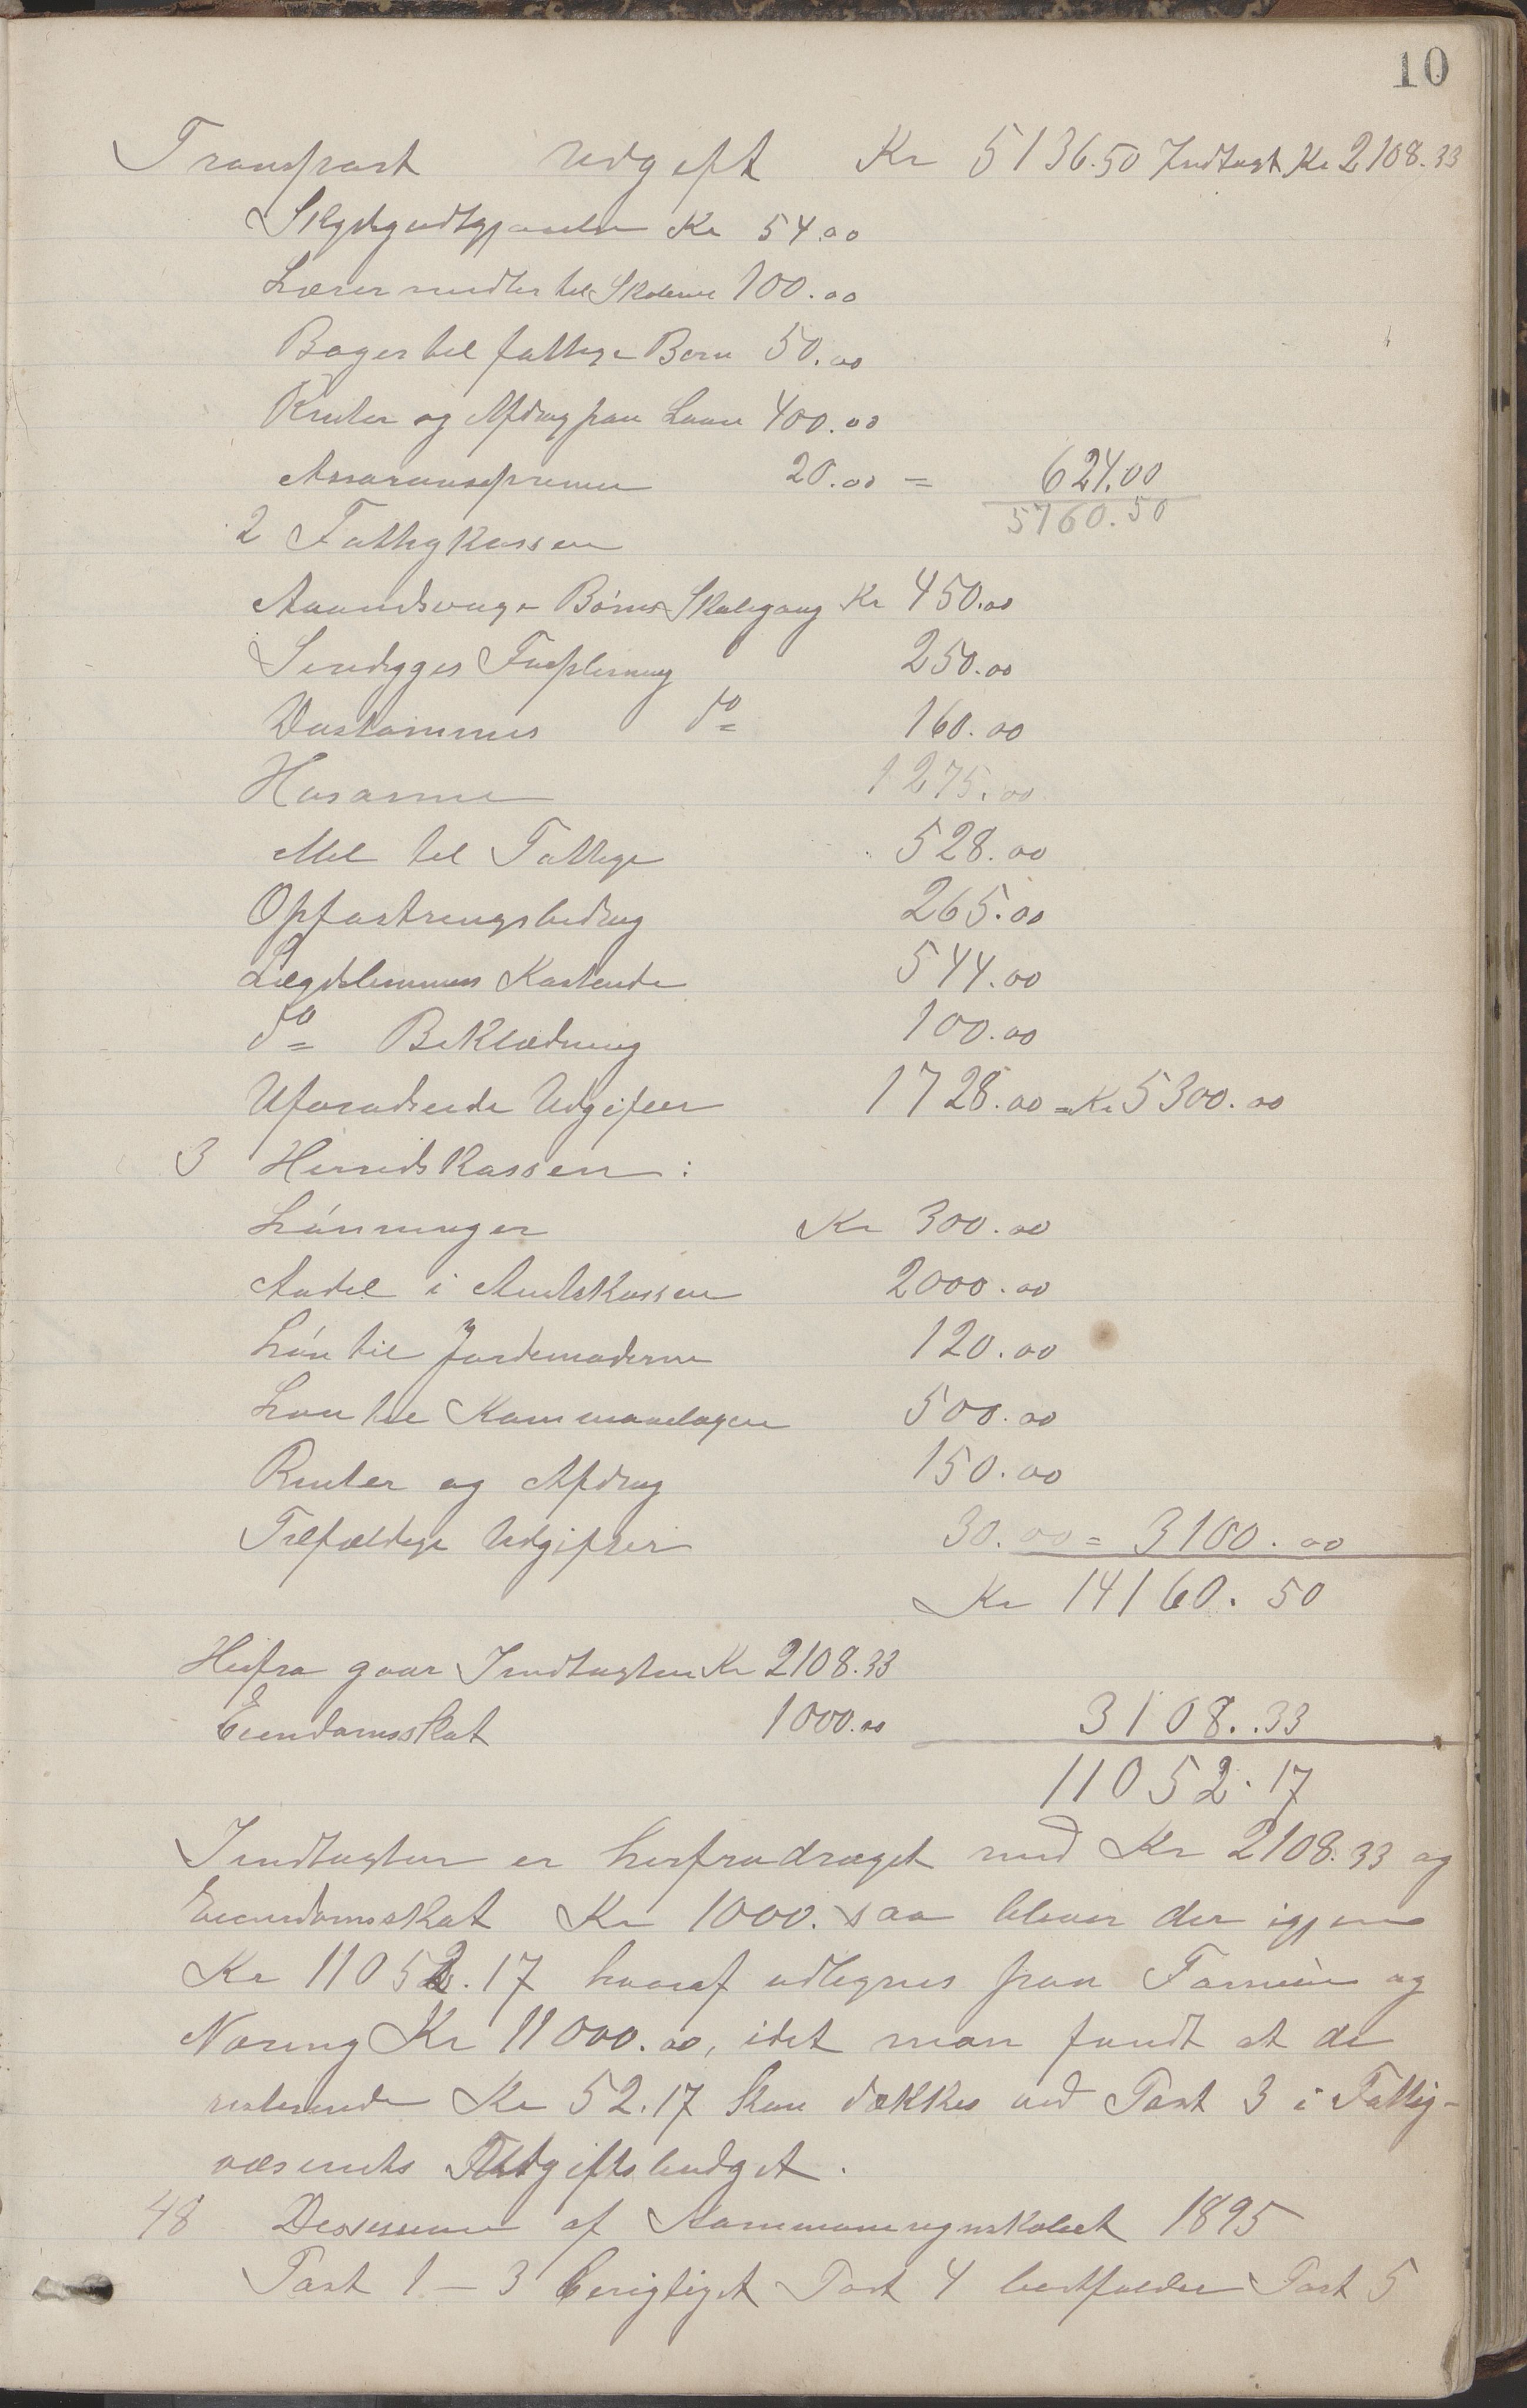 10
Transport Udgift Kr 5136.50 Indtægt Kr 2108.33
Skydsgodtgjørelse Kr 54.00
Læremidler til Skolerne 100.00
Bøger til fattige Børn 50.00
Renter og Afdrag paa Laan 400.00
Assuransepremie 20.00 = 624.00
5760.50
2 Fattigkassen
Aandsvage Børns Skolegang Kr 450.00
Sindsyges Forpleining 250.00
Vanføres do 160.00
Husarme 1275.00
Mel til Fattige 528.00
Opfostringsbidrag 265.00
Lægdslemmers Kostende 544.00
do Beklædning 100.00
Uforudseede Udgifter 1728.00 = Kr 5300.00
3 Herredskassen:
Lønninger Kr 300.00
Andel i Amtskassen 2000.00
Løn til Jordemoderen 120.00
Løn til Kommunelægen 500.00
Renter og Afdrag 150.00
Tilfældige Udgifter 30.00 = 3100.00
Kr 14160.50
Herfra gaar Indtægten Kr 2108.33
Eiendomsskat 1000.00 3108.33
11052.17
Indtægten er herfradraget med Kr 2108.33 og
Eiendomsskat Kr 1000. saa bliver der igjen
Kr 11052.17 hvoraf udlignes paa Formue og
Næring Kr 11000.00, idet man fandt at de
resterende Kr 52.17 kan dækkes ved Post 3 i Fattig-
væsenets Udgiftsbudget.
48 Desisioner af Kommuneregnskabet 1895
Post 1 – 3 berigtiget Post 4 bortfalder Post 5